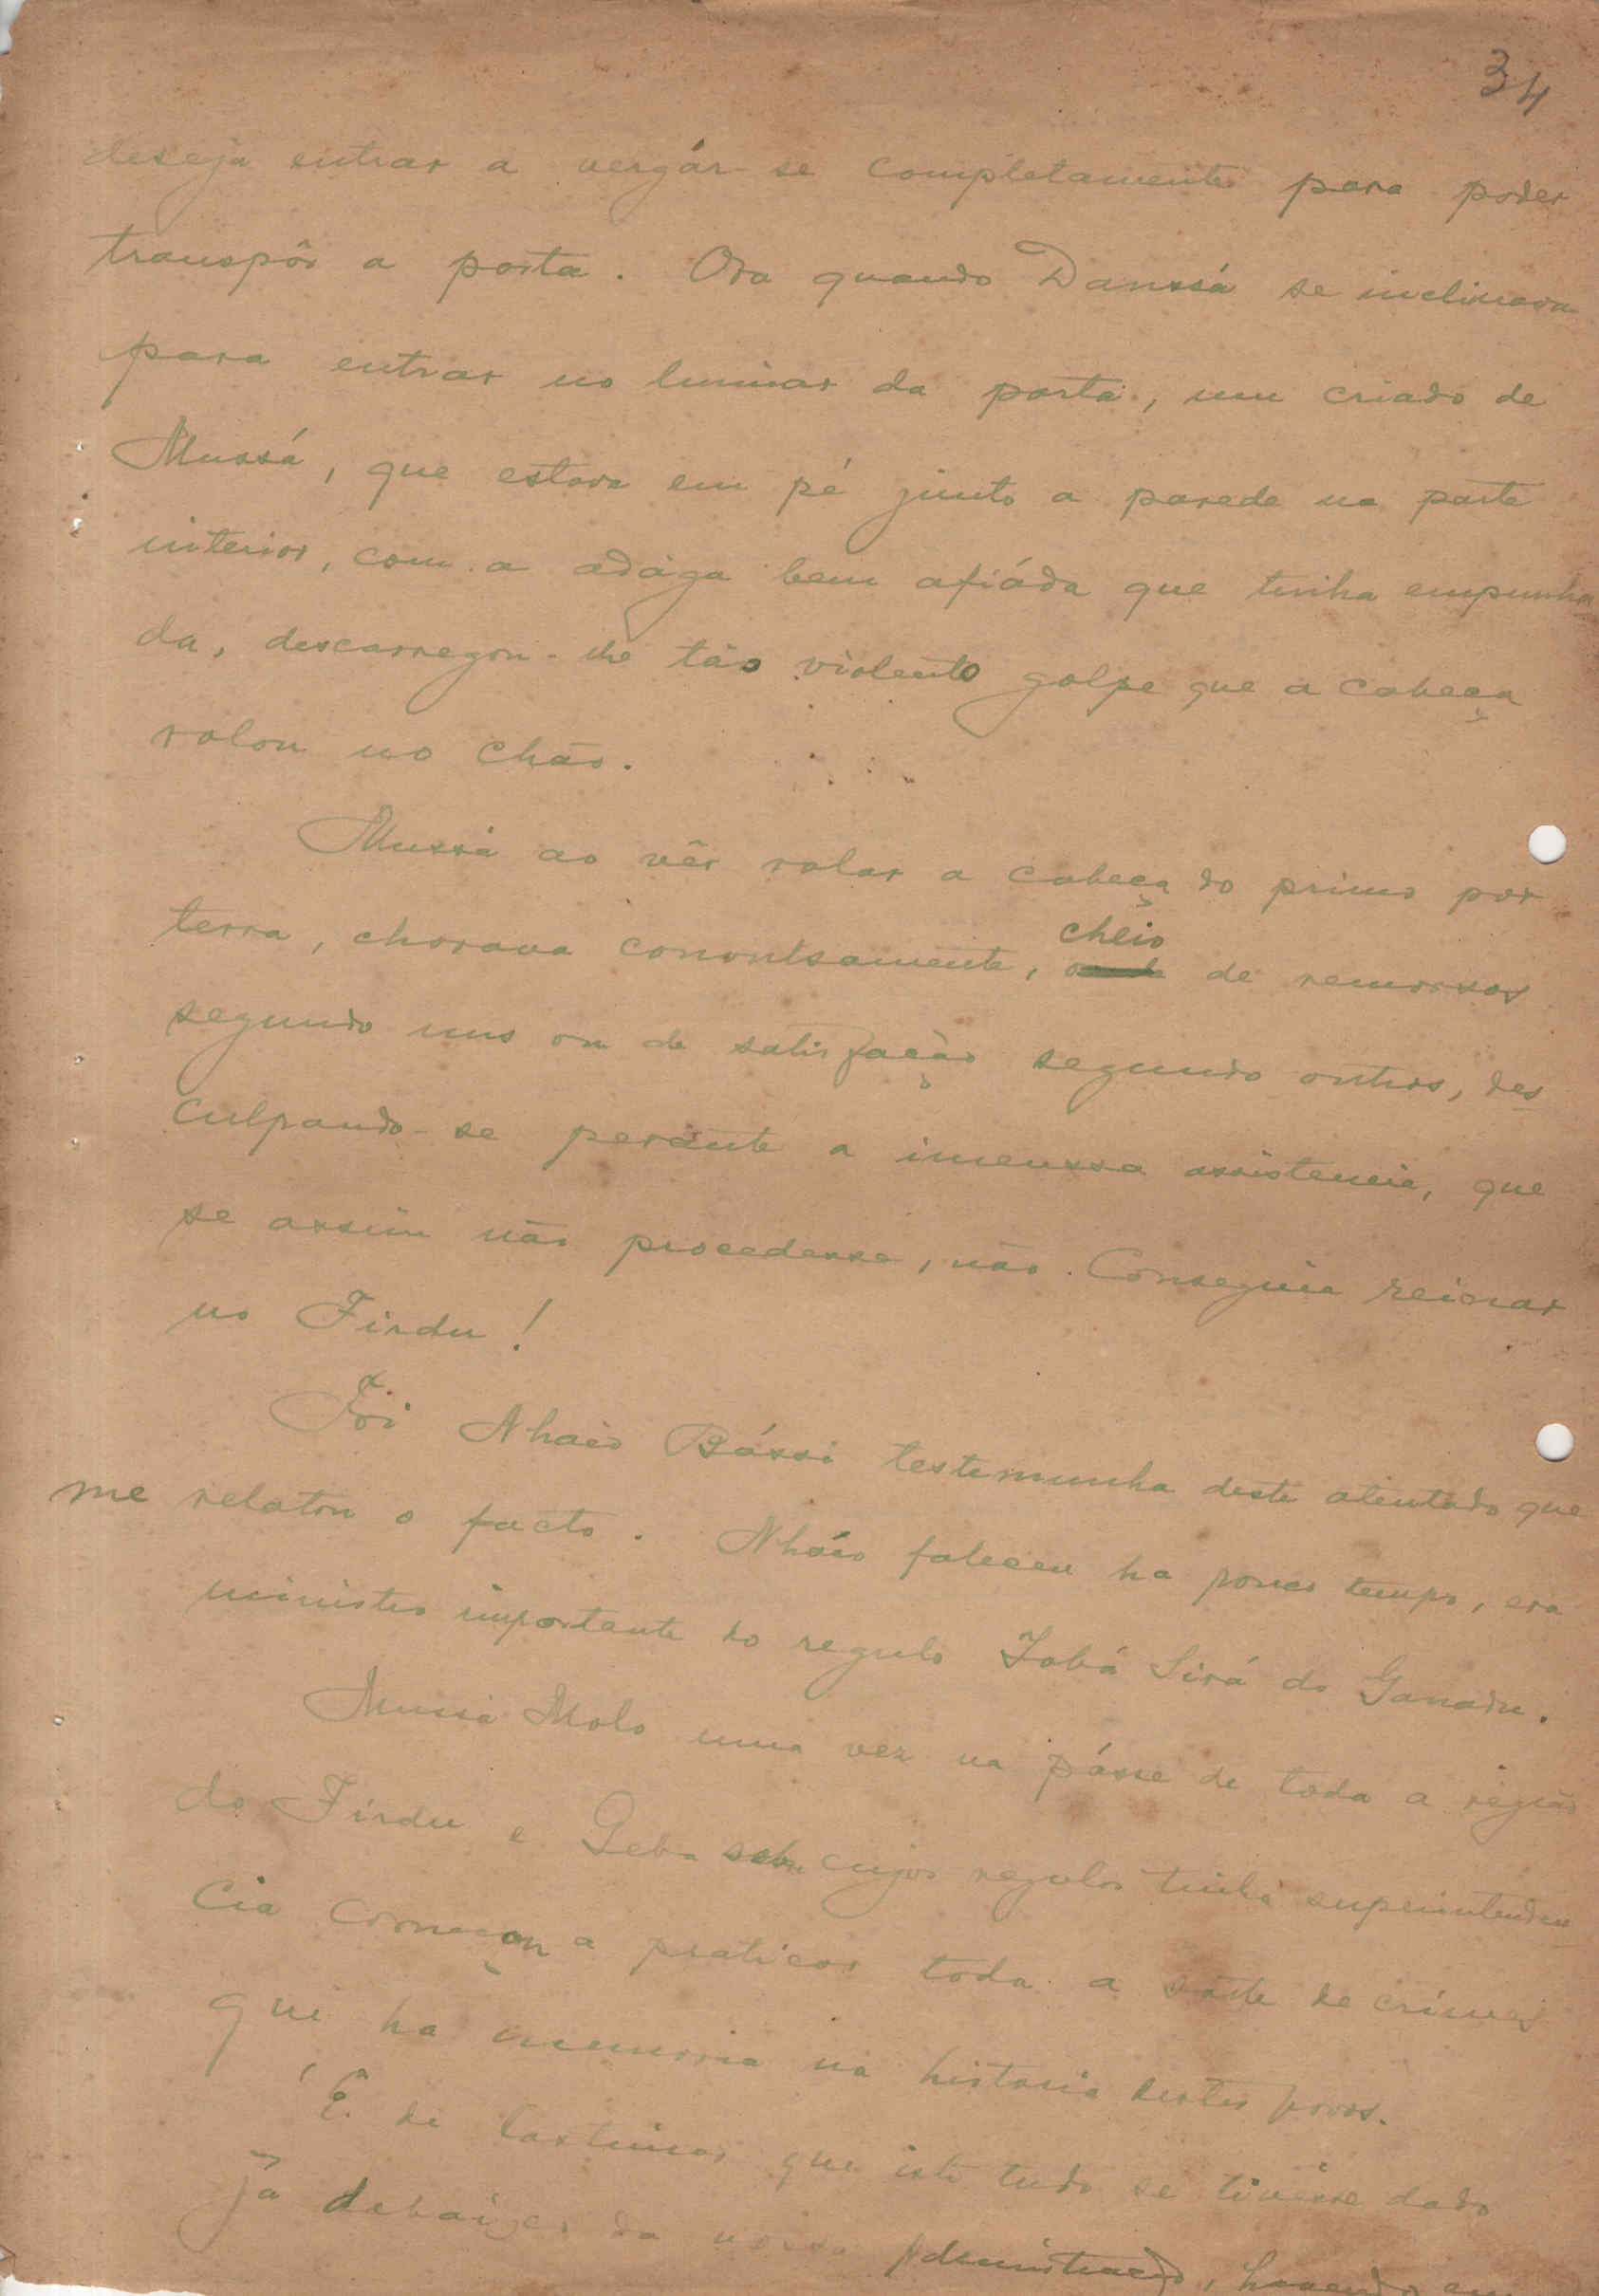 34
deseja entrar a vergár-se completamente para poder
transpôr a porta. Ora quando Danssá se inclinava
para entrar no luminar da porta, um criado de
Mussá, que estava em pé junto a parede na parte
interior, com a adága bem afiáda que tinha empunha
da, descarregou-lhe tão violento golpe que a cabeça
rolou no chão.
Mussá ao vêr rolar a cabeça do primo por
terra, chorava convulsamente, cheio de remorsos
segundo uns ou de satisfação segundo outros, des
culpando-se perante a imenssa assistencia, que
se assim não procedesse, não conseguia reinar
no Firdu!
Foi Nhaio Bássi testemunha deste atentado que
me relatou o facto. Nháio faleceu ha pouco tempo, era
ministro importante do regulo Iobá Sirá do Ganadu.
Mussá Molo uma vez na pósse de toda a região
do Firdu e Geba sobre cujos regulos tinha superintenden
cia começou a praticar toda a sorte de crimes
que ha memoria na historia destes povos.
É de lastimar que isto tudo se tivésse dado
já debaixo da nossa administração, havendo